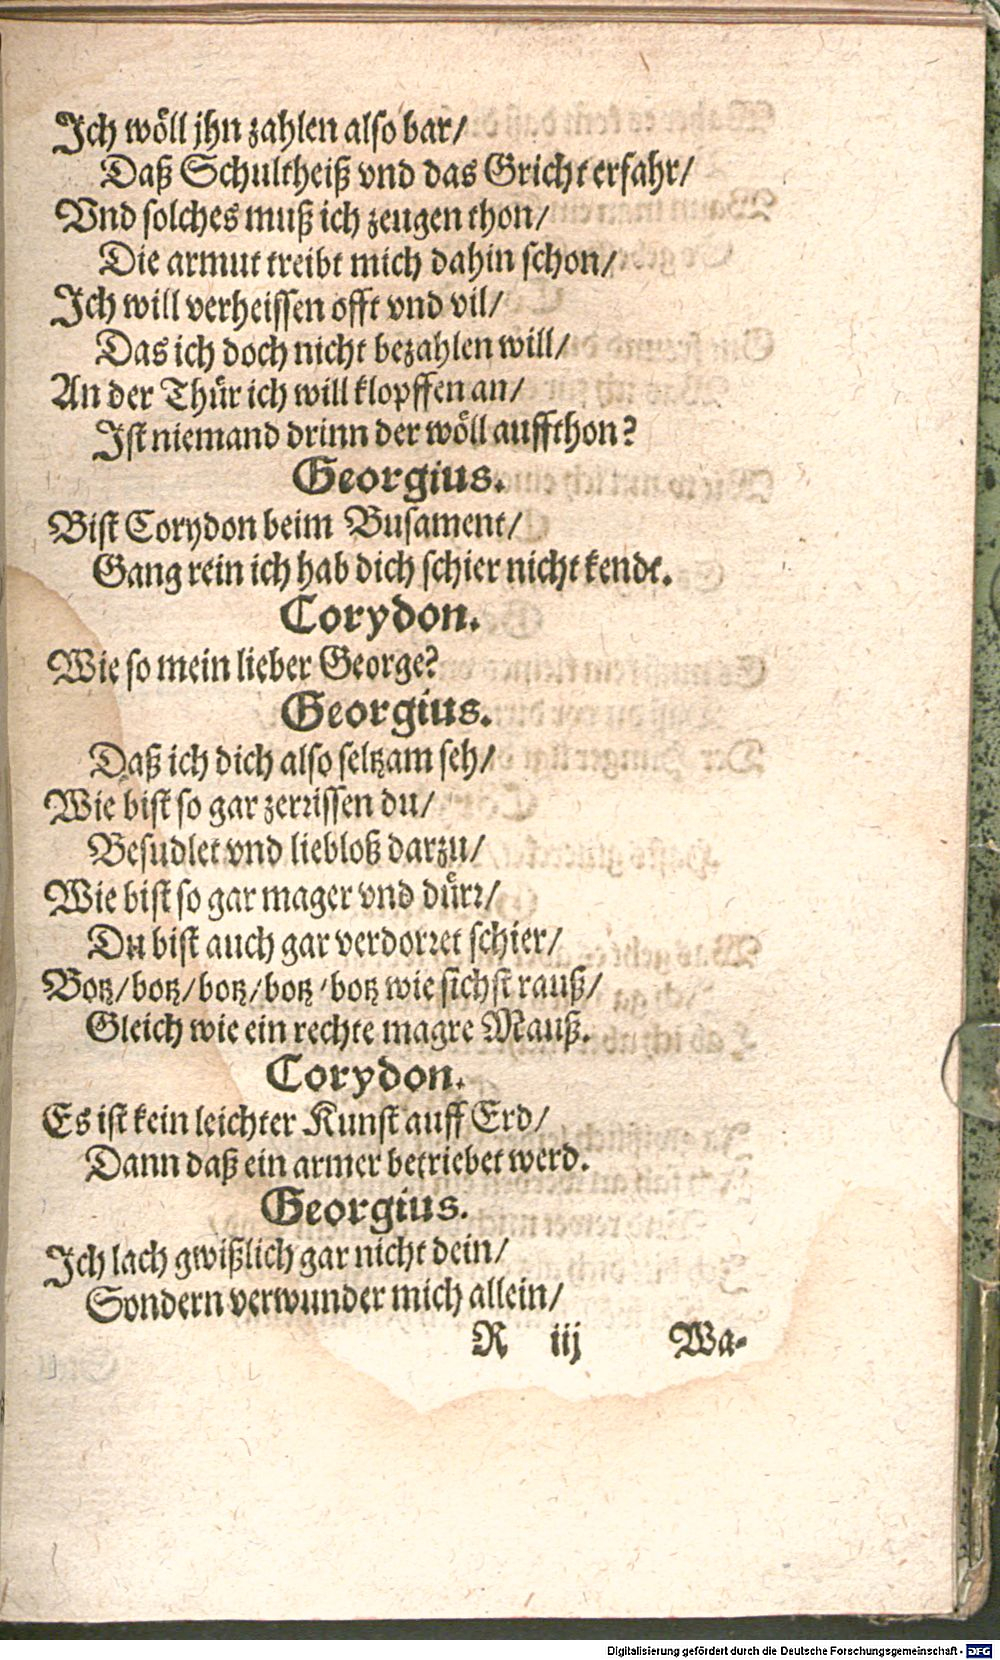 Ich wöll jhn zahlen also bar/
Daß Schultheiß vnd das Gricht erfahr/
Vnd solches muß ich zeugen thon/
Die armut treibt mich dahin schon/
Ich will verheissen offt vnd vil/
Das ich doch nicht bezahlen will/
An der Thür ich will klopffen an/
Ist niemand drinn der wöll auffthon?
Georgius.
Bist Corydon beim Busament/
Gang rein ich hab dich schier nicht kendt.
Corydon.
Wie so mein lieber George?
Georgius.
Daß ich dich also seltzam seh/
Wie bist so gar zerrissen du/
Besudlet vnd liebloß darzu/
Wie bist so gar mager vnd dürr/
Du bist auch gar verdorret schier/
Botz/botz/botz/botz/botz wie sichst rauß/
Gleich wie ein rechte magre Mauß.
Corydon.
Es ist kein leichter Kunst auff Erd/
Dann daß ein armer betriebet werd.
Georgius.
Ich lach gwißlich gar nicht dein/
Sondern verwunder mich allein/
R iij Wa-
Digitalisierung gefördert durch die Deutsche Forschungsgemeinschaft - DFG